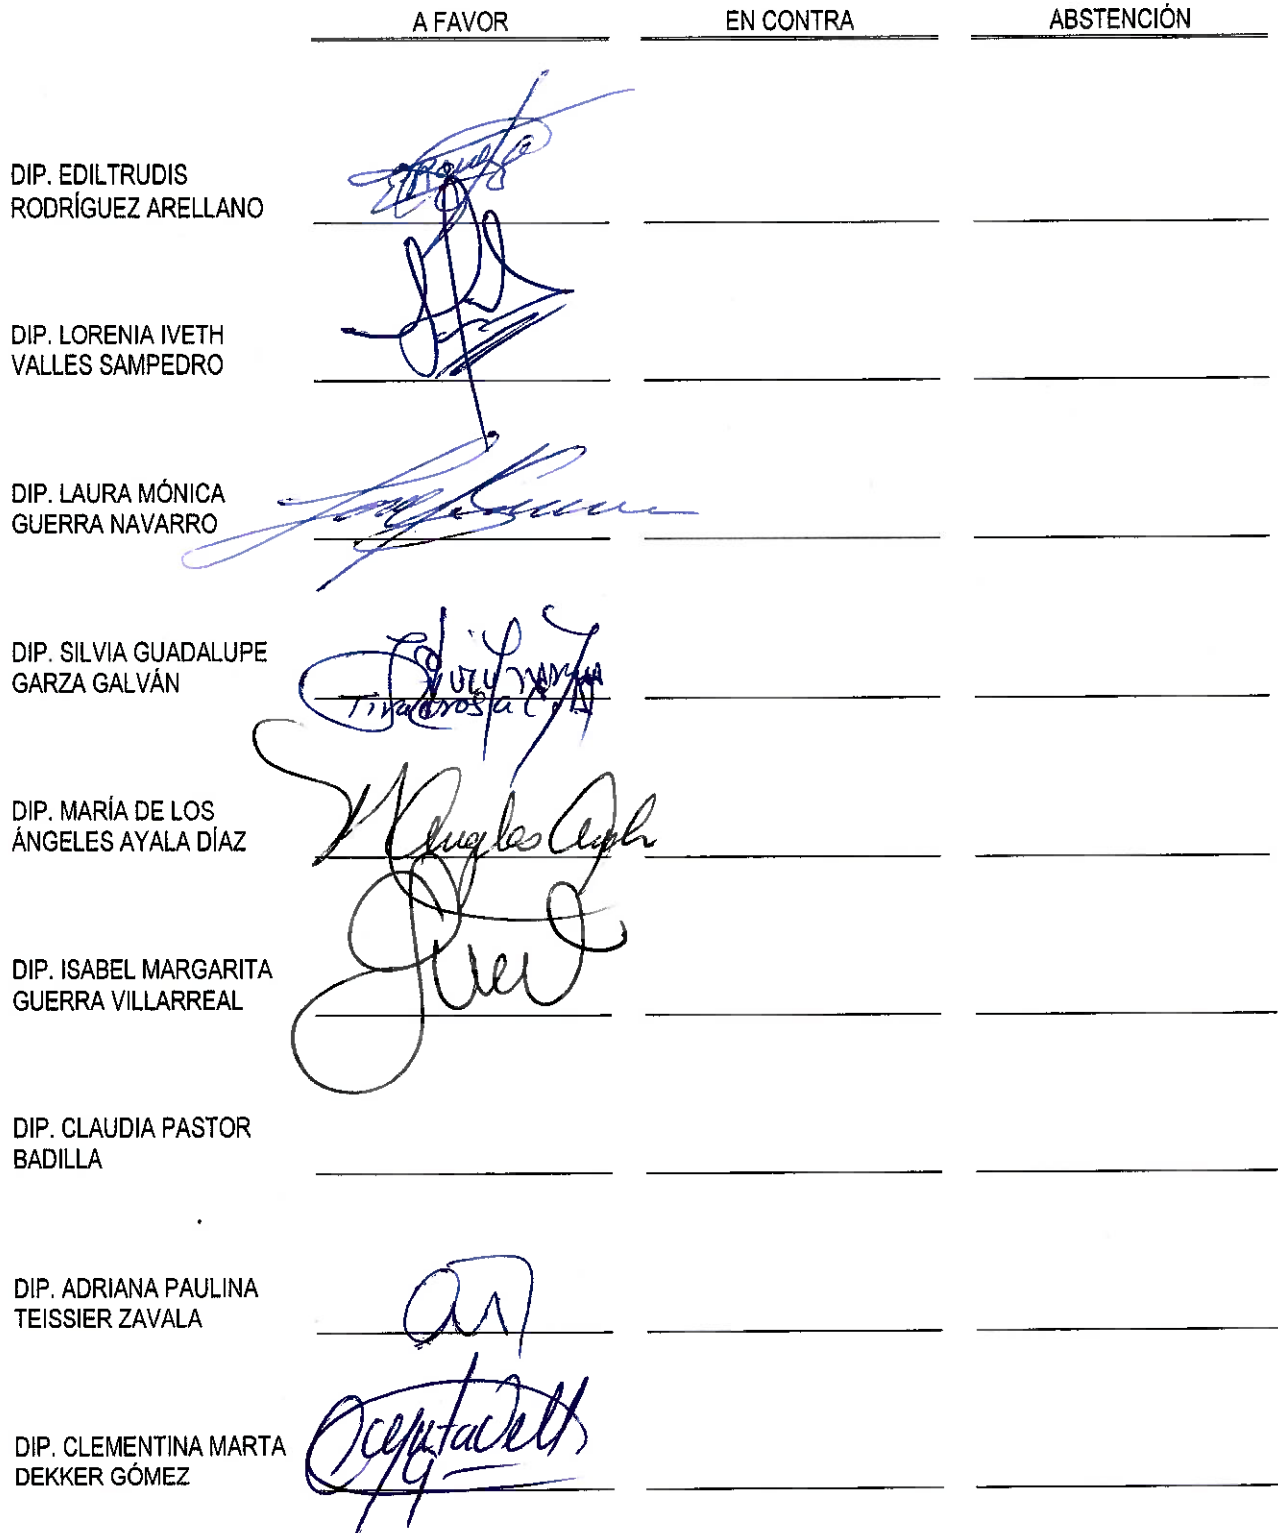 A FAVOR EN CONTRA ABSTENCIÓN
DIP. EDILTRUDIS
RODRÍGUEZ ARELLANO
DIP. LORENIA IVETH
VALLES SAMPEDRO
DIP. LAURA MÓNICA
GUERRA NAVARRO
DIP. SILVIA GUADALUPE
GARZA GALVÁN
DIP. MARÍA DE LOS
ÁNGELES AYALA DÍAZ
M Angeles Ayala
DIP. ISABEL MARGARITA
GUERRA VILLARREAL
DIP. CLAUDIA PASTOR
BADILLA
DIP. ADRIANA PAULINA
TEISSIER ZAVALA
DIP. CLEMENTINA MARTA
DEKKER GÓMEZ